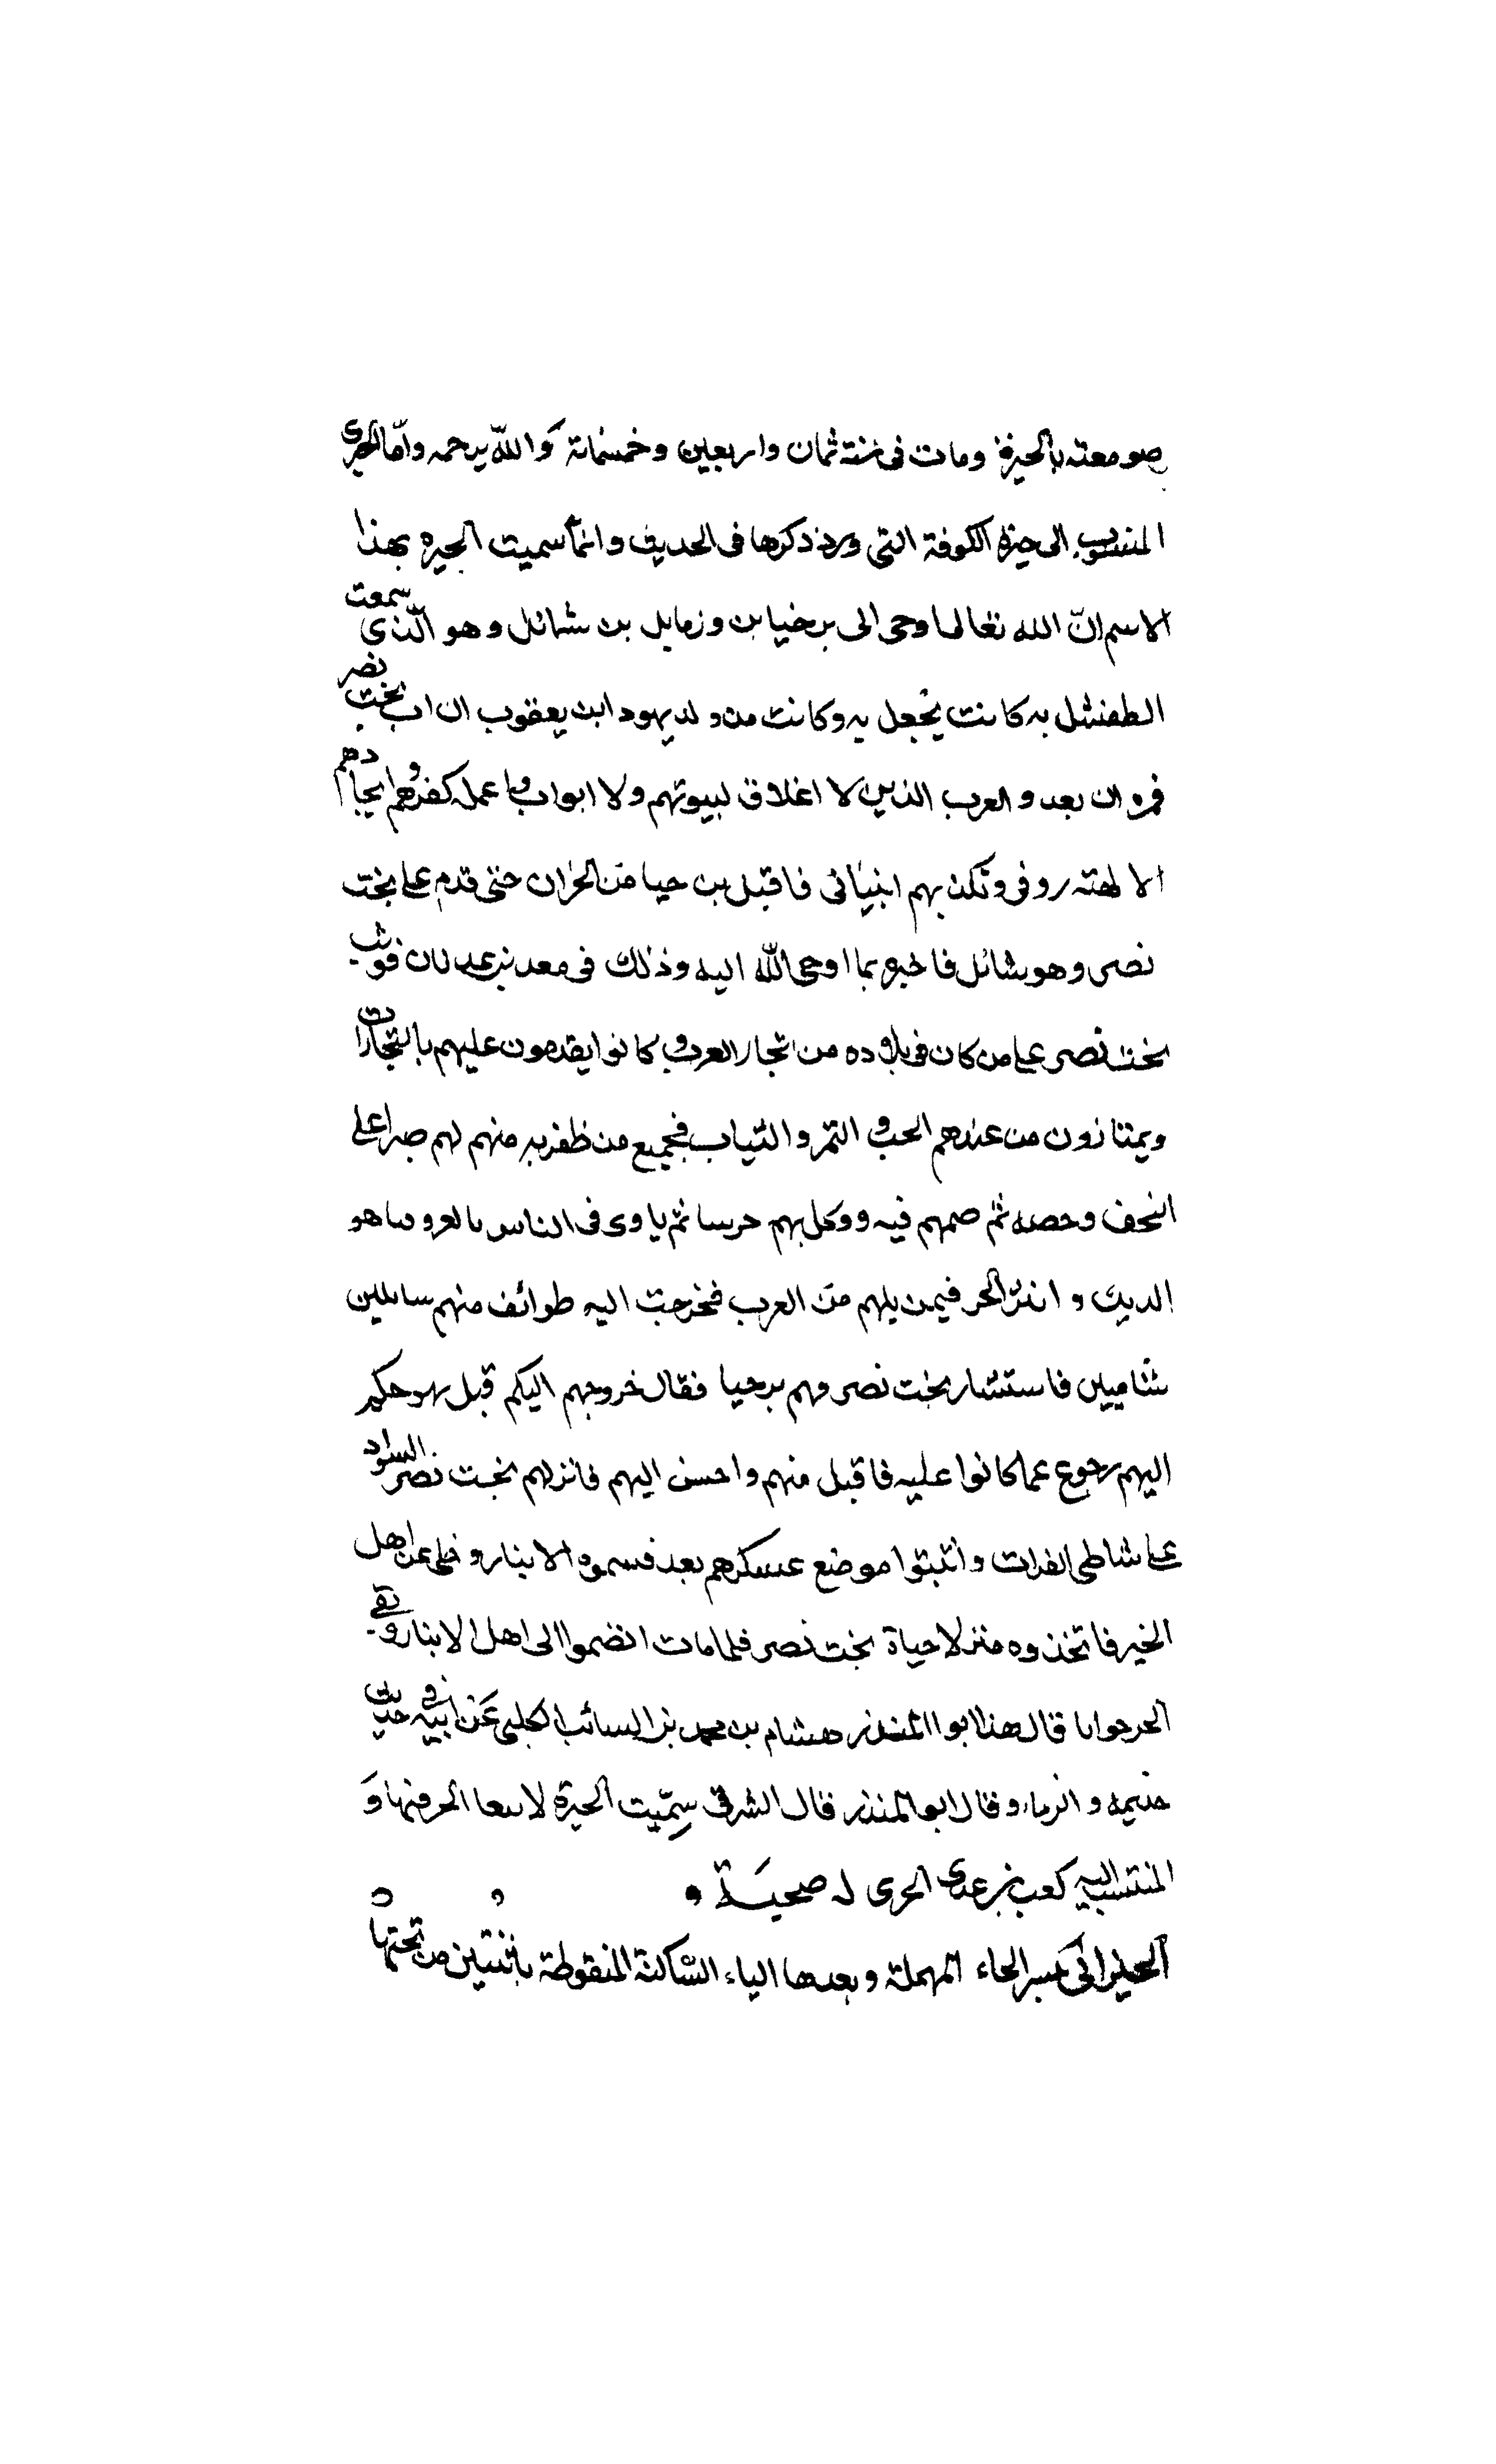 صومعته بالحيرة ومات فى سنة ثمان واربعين وخمسمائة والله يرحمه واما الحيرى
المنسوب الى حيرة الكوفة التى ورد ذكرها فى الحديث وانما سميت الحيره بهذا
الاسم ان الله تعالى اوحى الى برخيا بن وزمايل بن شمائل وهو الذى سمعت
الطفنشل به كانت يجعل به وكانت من ولد يهود ابن يعقوب ان اب بخت نصر
فمره ان بعد و العرب الذين لا اغلاق لبيوتهم ولا ابواب عمله كفرهم
فاقبل بن حيا من الحران حتى قدم على بخت
نصر وهو بشائل فاخبره بما اوحى الله اليه وذلك فى معد بن عدنان فوثب
بخت نصر على من كان فى بلاده من اتجار العرب وكانوا يقدمون عليهم بالتجارات
ويمتازون من عندهم الحب و التمر والثياب فجميع من ظفر به منهم لهم صبرا على
النجف وحصنه ثم ضمهم فيه ووكل بهم حرسا ثم ياوى فى الناس
الدين و فيمن يلهم من العرب فخرجت اليه طوائف منهم سايلين
شاميين فاستشار بخت نصر برحيا فقال خروجهم اليكم قبل
اليهم رجوع عما كانوا عليه فاقبل منهم واحسن اليهم فانزلهم بخت نصر السواد
على شاطى الفرات واثبتوا موضع عسكرهم بعد فسموه الابنار وخلى عن اهل
الخير فاتخذوه منزلا حياة بخت نصر فلما مات انضموا الى اهل الابنار وبقى
الحر حوابا قال هذا ابو المنذر هشام بن محمد بن السائب الكلبى عن ابيه فى حديث
خديمه و الزماء وقال ابو المنذر قال الشرقى سميت الحيرة
المنتسب اليه كعب بن عدى الحرى له صحبة
الحيزانى بكسر الحاء المهملة وبعدها الياء الساكنة المنقوطة باثنتين من تحتها